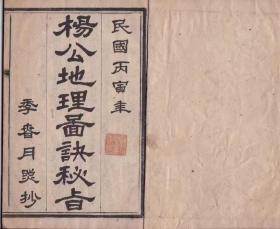 民國丙寅年
楊公地理啚訣秘旨
季春月[?]抄